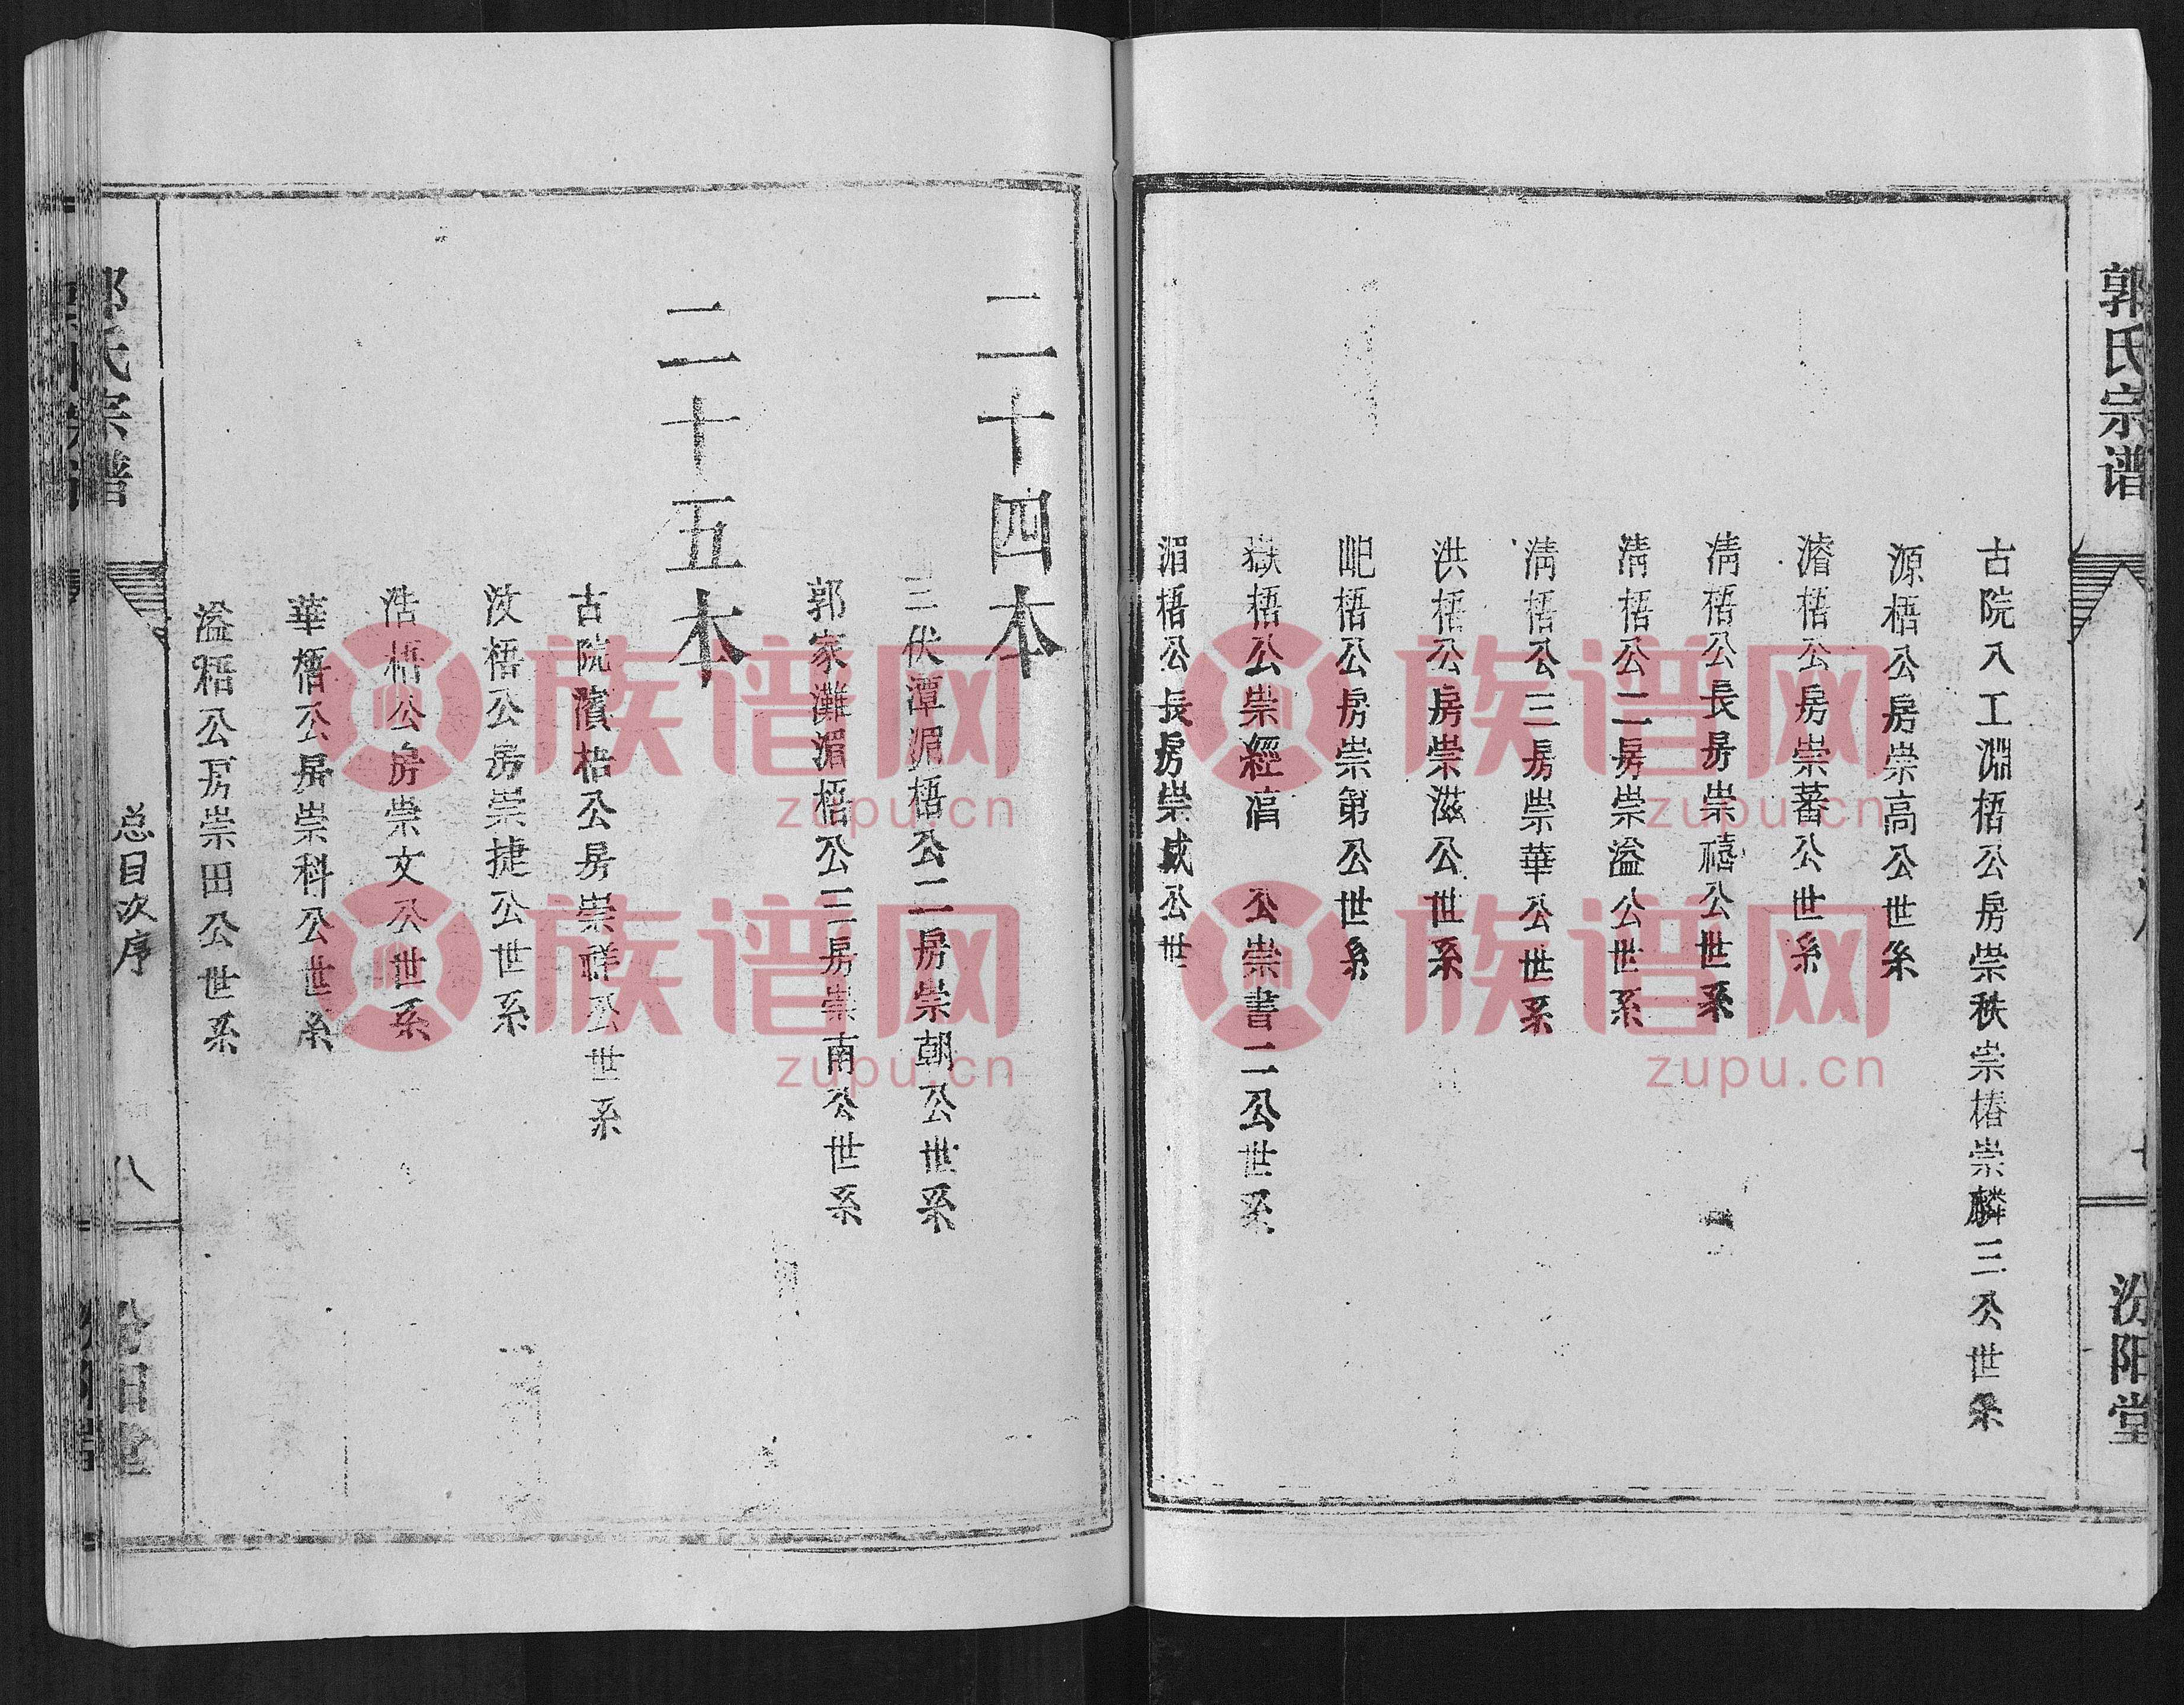 郭氏宗谱
汾阳堂
古院入工淵梧公房崇秩崇椿崇麟三公世系
源梧公房崇高公世系
濬梧公房崇蕃公世系
清梧公長房崇禧公世系
清梧公二房崇溢公世系
清梧公三房崇華公世系
洪梧公房崇滋公世系
屺梧公房崇第公世系
嶽梧公崇經 公崇書二公世系
湄梧公長房崇威公世
二十四本
三伏潭湄梧公二房崇朝公世系
郭家灘湄梧公三房崇南公世系
二十五本
古院濱梧公房崇祥公世系
汝梧公房崇捷公世系
浩梧公房崇文公世系
華梧公房崇科公世系
溢梧公房崇田公世系
郭氏宗譜
总目次序
八
汾阳堂
族谱网
zupu.cn
族谱网
zupu.cn
族谱网
zupu.cn
族谱网
zupu.cn